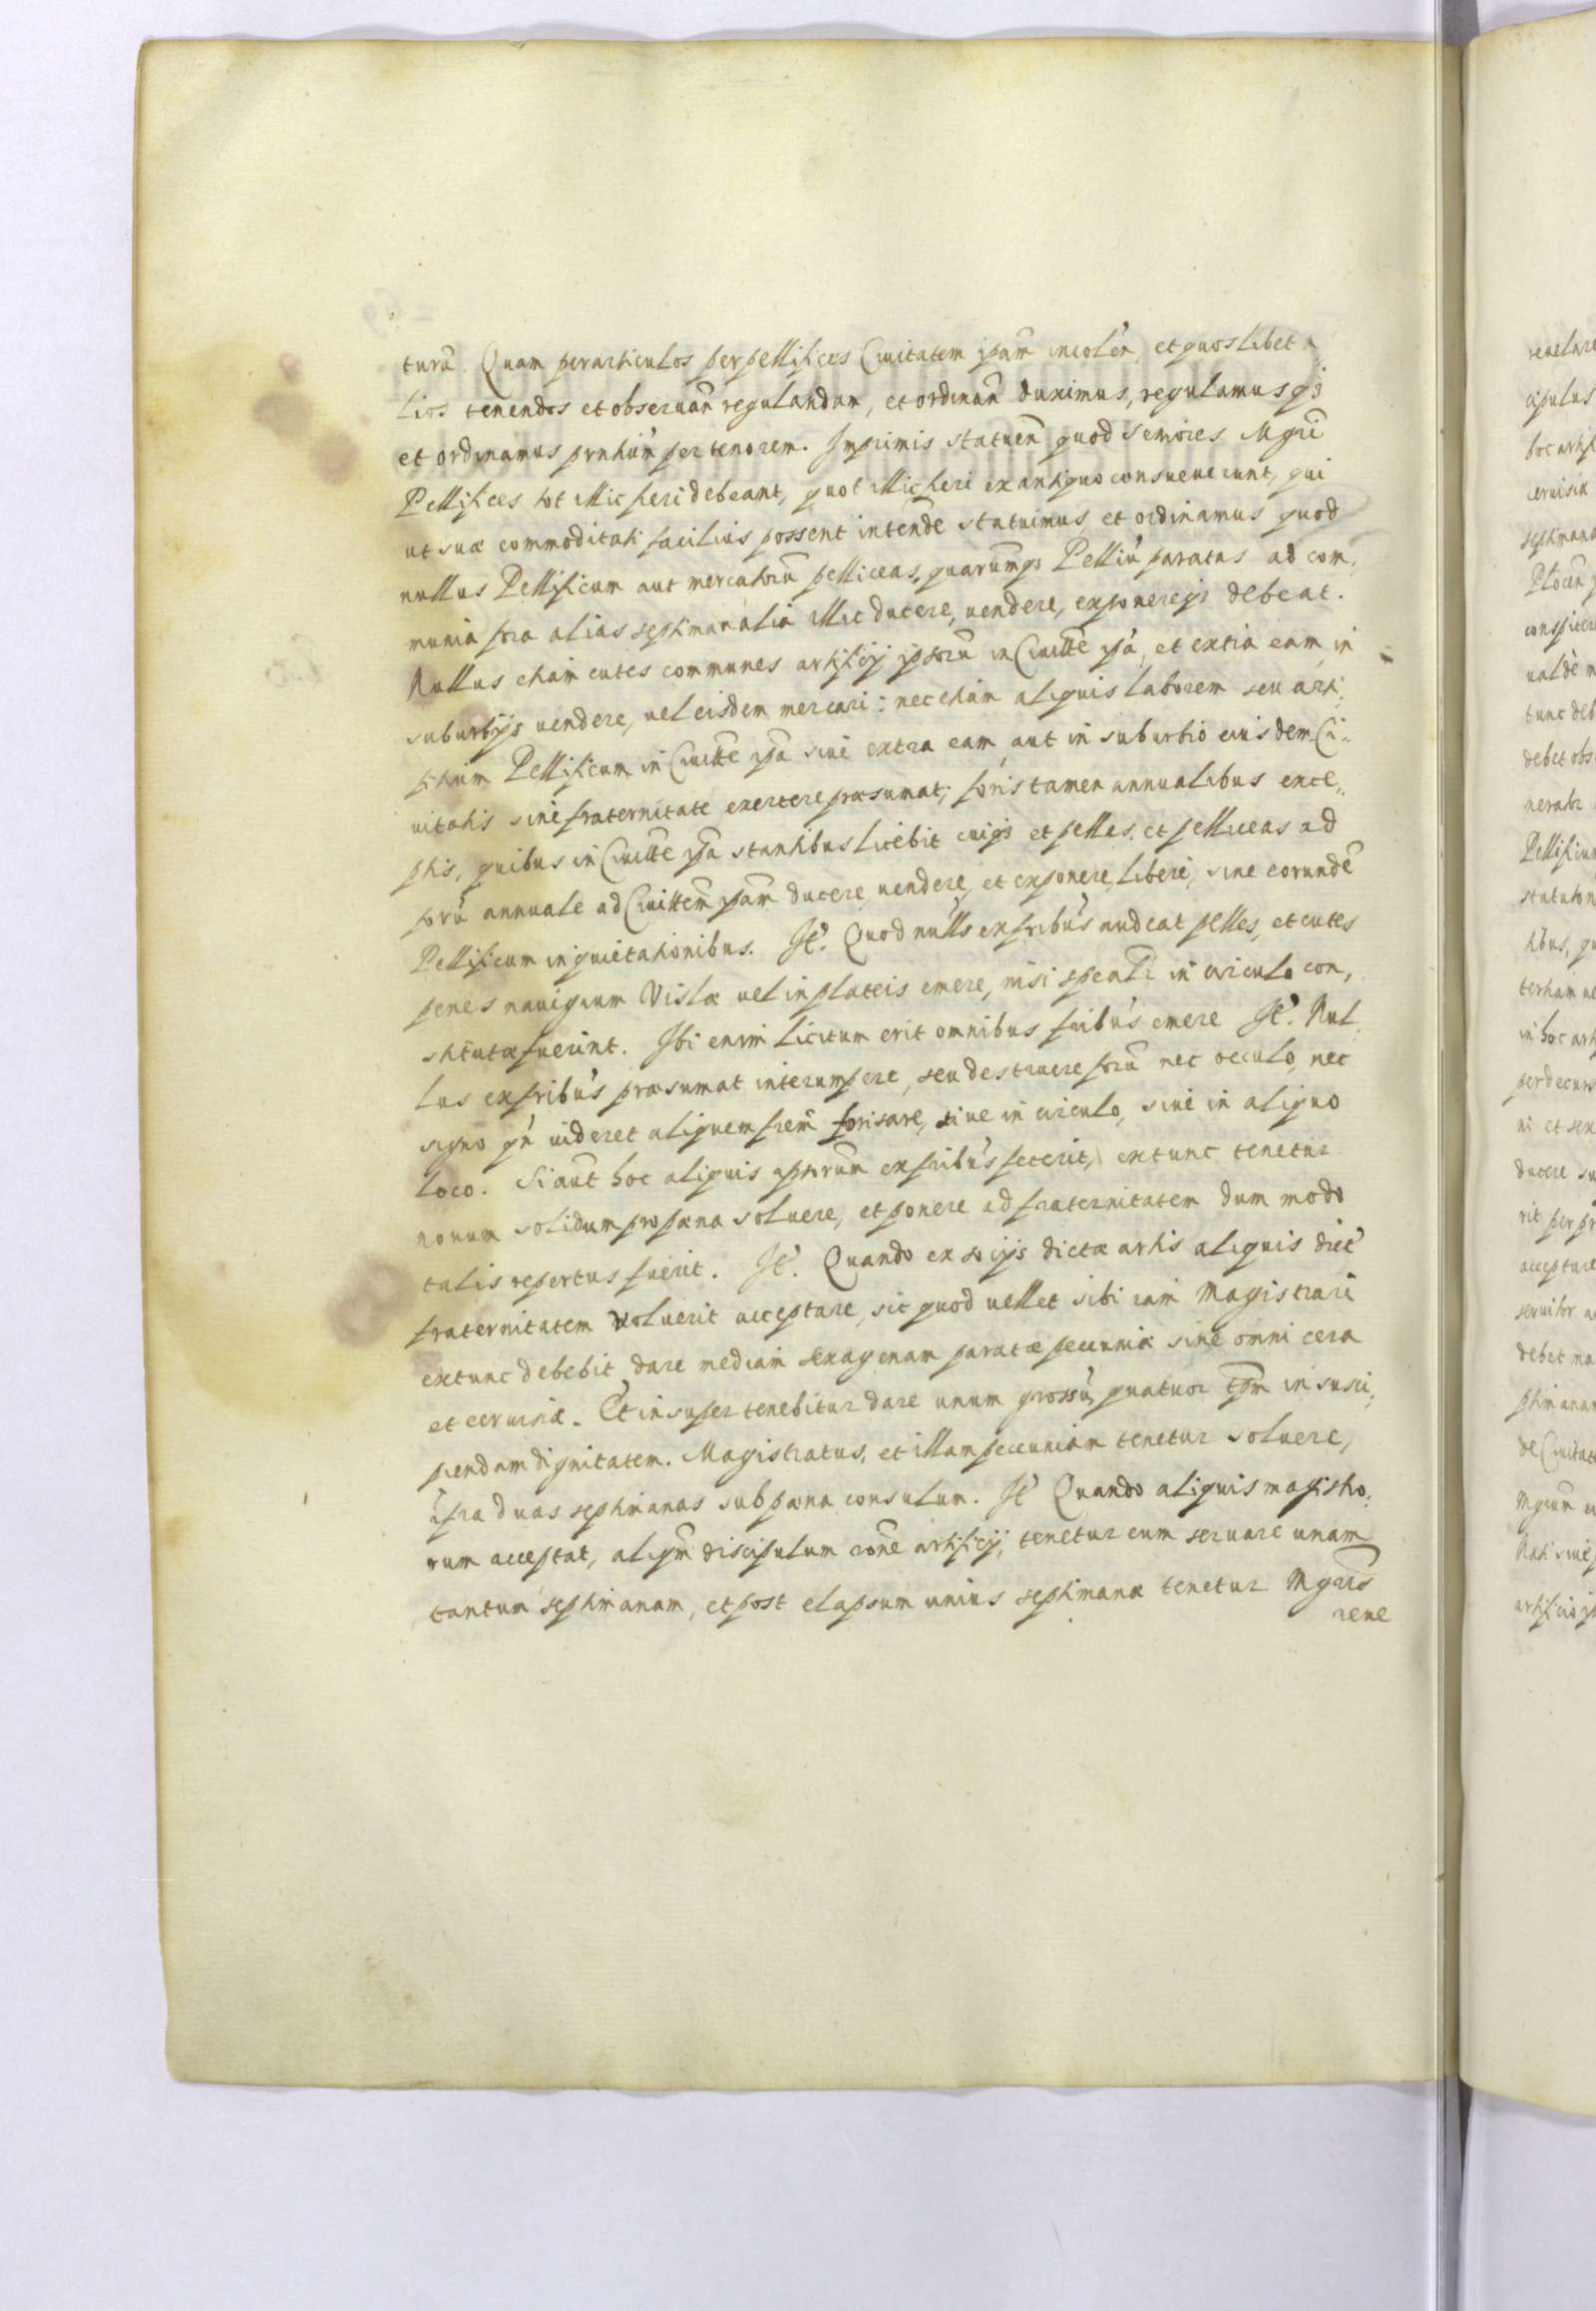 turã. Quam per articulos per pellifices Ciuitatem ipam incolen, et quoslibet a
lios tenendos et obseruan regulandam, et ordinan duximus, regulamus qȝ
et ordinamus pnhiũ per tenorem. Imprimis statuen quod Seniores Mgri
Pellifices tot illic fieri debeant, quot illic fieri ex antiquo consueuerunt, qui
ut suæ commoditati facilius possent intende statuimus et ordinamus quod
nullus Pellificum aut mercatorũ pelliceas, quarumqȝ Pelliũ paratas ad com,
munia fora alias septimanalia illic ducere, uendere, exponereqȝ debeat.
Nullus etiam cutes communes artificij iptorũ in Ciuitte ipa, et extra eam, in
suburbijs uendere, uel eisdem mercari: nec etiam aliquis laborem seu arti,
ficium Pellificum in Ciuitte ipa siue extra eam, aut in suburbio eiusdem Ci,,
uitatis sine fraternitate exercere præsumat; foris tamen annualibus exce,,
ptis, quibus in Ciuitte ipa stantibus licebit cuiqȝ et pelles, et pelliceas ad
forũ annuale ad Ciuittem ipam ducere, uendere, et exponere, liberè, sine eorundẽ
Pellificum inquietationibus. It. Quod nulls ex fribus audeat pelles, et cutes
penes nauigium Vislæ uel in plateis emere, nisi spealr in circulo con,
stitutæ fuerint. Ibi enim licitum erit omnibus fribus emere It. Nul
lus ex fribus præsumat interumpere, seu destruere forũ nec oculo, nec
signo qn uideret aliquem frem forisare, siue in circulo, siue in aliquo
loco. Si aut hoc aliquis iptorum ex fribus fecerit, extunc tenetur
nonum solidum pro pæna soluere, et ponere ad fraternitatem dum modo
talis repertus fuerit. It. Quando ex socijs dictæ artis aliquis dict
fraternitatem uoluerit acceptare, sic quod uellet sibi iam Magistrari
extunc debebit dare mediam sexagenam paratæ pecuniæ sine omni cera
et ceruisia. Et insuper tenebitur dare unum grossũ quatuor tpm in susci,
piendam dignitatem. Magistratus, et illam pecuniam tenetur soluere,
ifra duas septimanas sub pæna consulum. It Quando aliquis magistro,
rum acceptat, aliqm discipulum rone artificij, tenetur eum seruare unam
tantum septimanam, et post elapsum unius septimanæ tenetur Mgris
reue